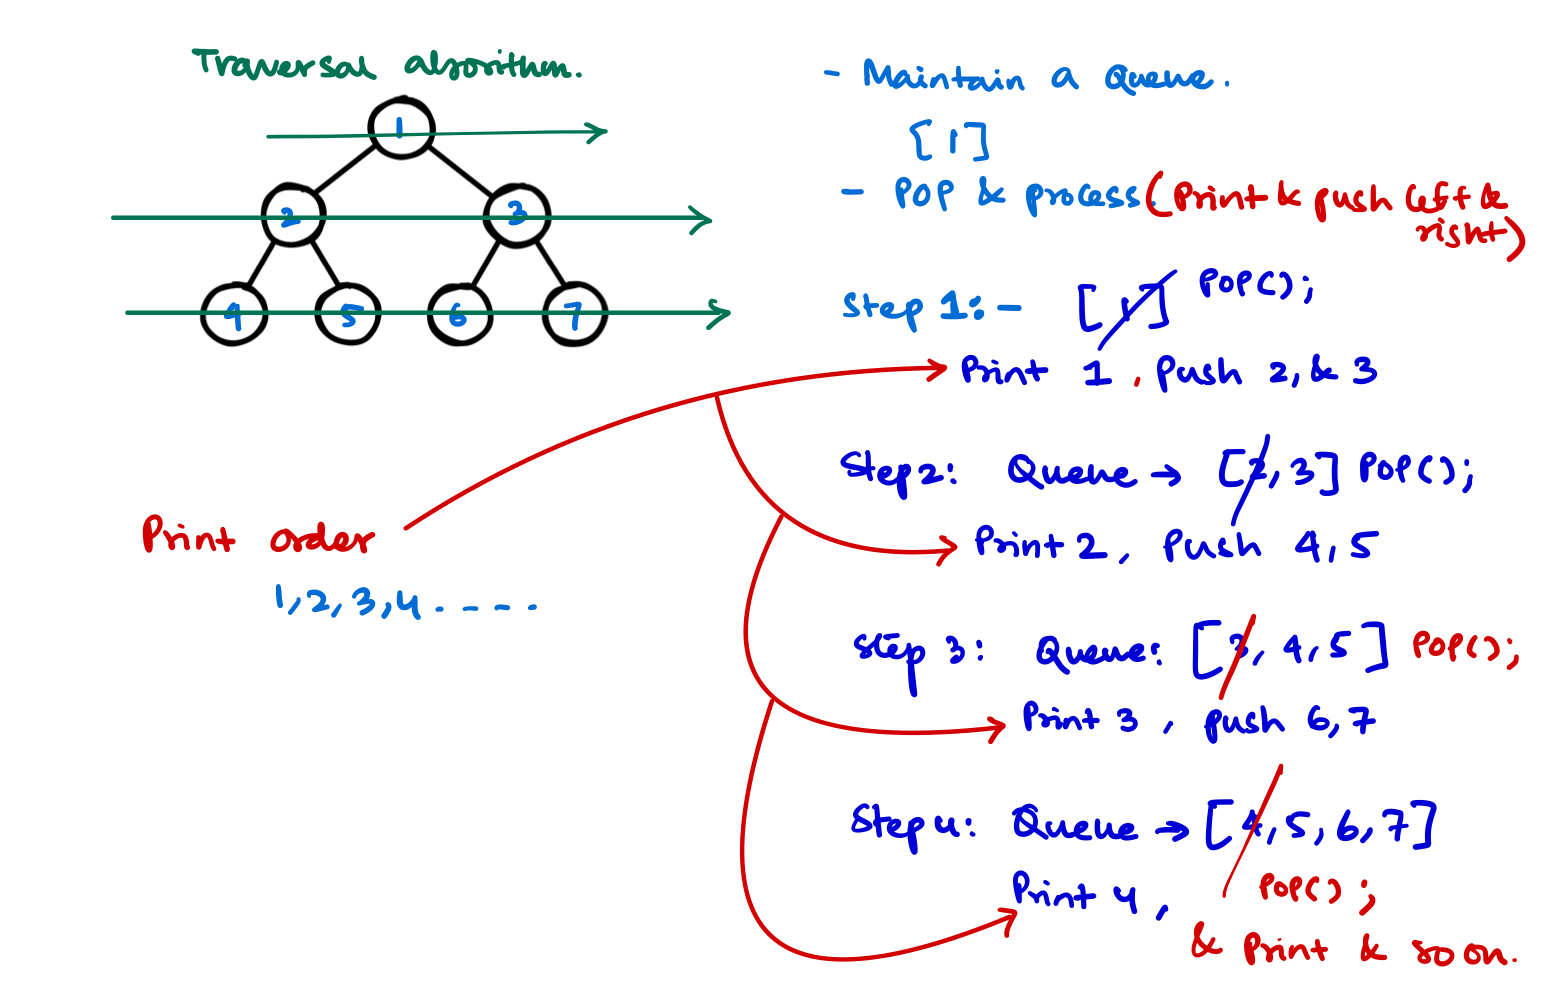 Traversal algorithm.
1
2 3
4 5 6 7
Print order
1,2,3,4 - - - -
- Maintain a Queue.
[1]
- POP & process. (Print & push left &
right)
Step 1:- [1] POP();
Print 1, Push 2, & 3
Step2: Queue → [2,3] POP();
Print 2, Push 4,5
Step 3: Queue: [3, 4,5] POP();
Print 3, push 6,7
Step 4: Queue → [4,5,6,7]
Print 4, POP();
& Print & so on.